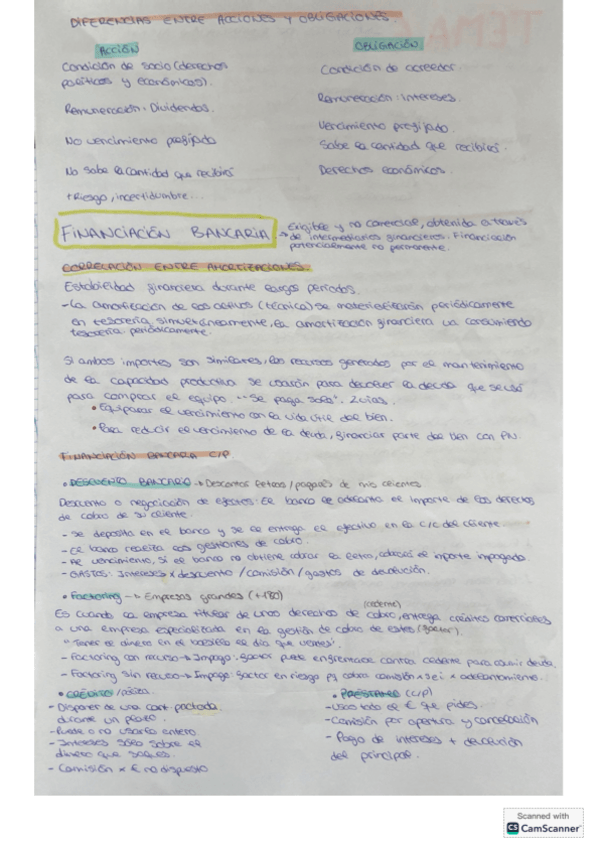 DIFERENCIAS ENTRE ACCIONES Y OBLIGACIONES.
ACCIÓN
Condición de socio (derechos
políticos y económicos).
Remuneración: Dividendos.
No vencimiento prefijado
No sabe la cantidad que recibirá
+Riesgo, incertidumbre...
OBLIGACIÓN
Condición de acreedor.
Remuneración: Intereses.
Vencimiento prefijado.
Sabe la cantidad que recibirá.
Derechos económicos.
FINANCIACIÓN BANCARIA → Exigible y no comercial, obtenida a través
de intermediarios financieros. Financiación
potencialmente no permanente.
CORRELACIÓN ENTRE AMORTIZACIONES.
Estabilidad financiera durante largos periodos.
- La amortización de los activos (técnica) se materializarán periódicamente
en tesorería, simultáneamente, la amortización financiera va consumiendo
tesorería periódicamente.
Si ambos importes son similares, los recursos generados por el mantenimiento
de la capacidad productiva se usarán para devolver la deuda que se usó
para comprar el equipo. "Se paga solo". 2 vías.
• Equiparar el vencimiento con la vida útil del bien.
• Para reducir el vencimiento de la deuda, financiar parte del bien con PN.
FINANCIACIÓN BANCARIA C/P
• DESCUENTO BANCARIO → Descontar letras/pagarés de mis clientes
Descuento o negociación de efectos: El banco le adelanta el importe de los derechos
de cobro de su cliente.
- Se deposita en el banco y se le entrega el efectivo en la C/C del cliente.
- El banco realiza las gestiones de cobro.
- Al vencimiento, si el banco no obtiene cobrar la letra, el importe impagado.
- GASTOS: Intereses x descuento / comisión / gastos de devolución.
• Factoring → Empresas grandes
Es cuando la empresa titular de unos derechos de cobro (cedente), entrega créditos comerciales
a una empresa especializada en la gestión de cobro de estos (factor).
"Tener el dinero en el bolsillo el día que vences".
- Factoring con recurso → Impago: factor puede enfrentarse contra cedente para cubrir deuda.
- Factoring sin recurso → Impago: factor en riesgo pq cobra comisión x sei x adelantamiento.
• CRÉDITO / Póliza
- Disponer de una cant. pactada
durante un plazo.
- Puede o no usarlo entero
- Intereses sólo sobre el
dinero que saques.
- Comisión x € no dispuesto
• PRÉSTAMO (C/P)
- Usas todo el € que pides.
- Comisión por apertura y cancelación
- Pago de intereses + devolución
del principal.
Scanned with
CS CamScanner